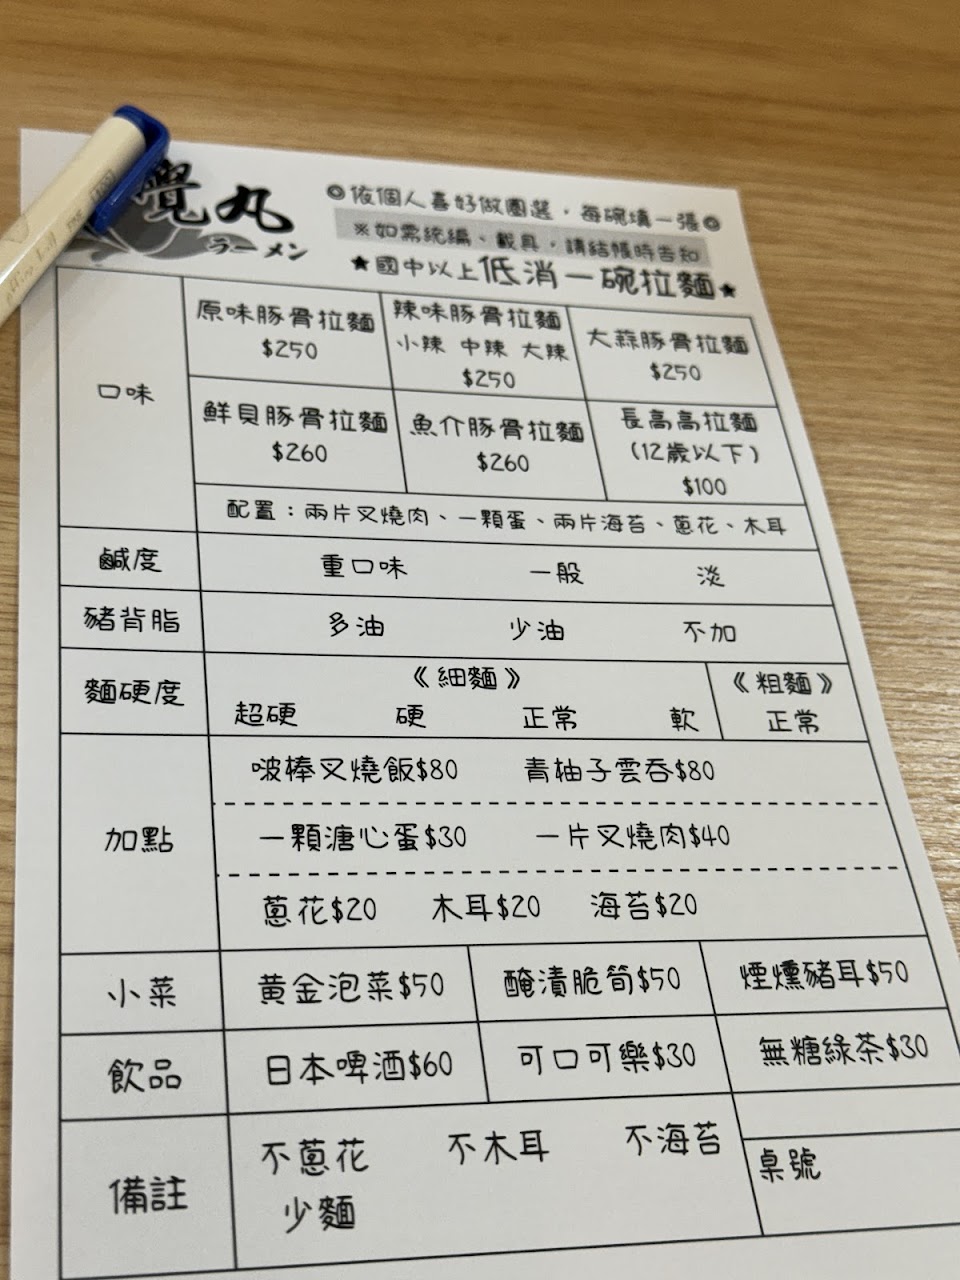 覺丸
ラーメン
◎依個人喜好做圈選，每碗填一張◎
※如需統編、載具，請結帳時告知
★國中以上低消一碗拉麵★
口味
原味豚骨拉麵
$250
辣味豚骨拉麵
小辣 中辣 大辣
$250
大蒜豚骨拉麵
$250
鮮貝豚骨拉麵
$260
魚介豚骨拉麵
$260
長高高拉麵
(12歲以下)
$100
配置：兩片叉燒肉、一顆蛋、兩片海苔、蔥花、木耳
鹹度 重口味 一般 淡
豬背脂 多油 少油 不加
麵硬度
《細麵》
超硬 硬 正常 軟
《粗麵》
正常
加點
啵棒叉燒飯$80 青柚子雲吞$80
一顆溏心蛋$30 一片叉燒肉$40
蔥花$20 木耳$20 海苔$20
小菜 黃金泡菜$50 醃漬脆筍$50 煙燻豬耳$50
飲品 日本啤酒$60 可口可樂$30 無糖綠茶$30
備註
不蔥花 不木耳 不海苔
少麵
桌號